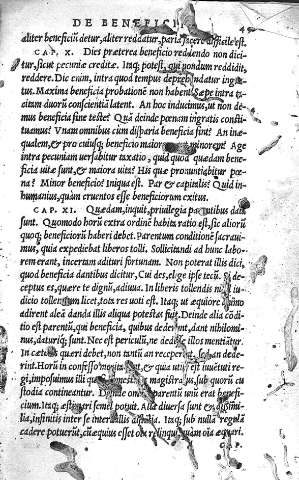 DE BENEFICI
aliter beneficiũ detur, aliter reddatur, paria facere difficile est.
CAP. X. Dies præterea beneficio reddendo non dici
tur, sicut pecuniæ creditæ. Itaq; potest, qui nondum reddidit,
reddere. Dic enim, intra quod tempus deprehendatur ingra
tus. Maxima beneficia probationẽ non habent. Sæpe intra ta
citam duorũ conscientiã latent. An hoc inducimus, ut non de-
mus beneficiũ sine teste? Quã deinde pœnam ingratis consti-
tuamus? Vnam omnibus cum disparia beneficia sint? An inæ
qualem, & pro cuiusq; beneficio maiorem minorem? Age
intra pecuniam uersabitur taxatio, quid quod quædam bene-
ficia uitæ sunt, & maiora uita? His quæ pronuntiabitur pœ-
na? Minor beneficio? Iniqua est. Par & capitalis? Quid in-
humanius, quàm cruentos esse beneficiorum exitus.
CAP. XI. Quædam, inquit, priuilegia parentibus data
sunt. Quomodo horũ extra ordinẽ habita ratio est, sic aliorũ
quoq; beneficiorũ haberi debet. Parentum conditionẽ sacraui-
mus, quia expediebat liberos tolli. Sollicitandi ad hunc labo-
rem erant, incertam adituri fortunam. Non poterat illis dici,
quod beneficia dantibus dicitur, Cui des, elige ipse tecũ. Si de
ceptus es, quære te dignũ, adiuua. In liberis tollendis nihil iu-
dicio tollentium licet, tota res uoti est. Itaq; ut æquiore animo
adirent aleã danda illis aliqua potestas fuit. Deinde alia cõdi-
tio est parentũ, qui beneficia, quibus dederunt, dant nihilomi-
nus, daturiq; sunt. Nec est periculũ, ne dedisse illos mentiãtur.
In cæteris quæri debet, non tantũ an receperint, sed an dede-
rint. Horũ in confesso merita sunt, & quia utile est iuuẽtuti re-
gi, imposuimus illi quasi domesticos magistratus, sub quorũ cu
stodia contineantur. Deinde omniũ parentũ unũ erat benefi-
cium. Itaq; æstimari semel potuit. Alia diuersa sunt & dissimi-
lia, infinitis inter se interuallis distantia. Itaq; sub nulla regulã
cadere potuerũt, cũ æquius esset oĩa relinqui, quàm oĩa æquari.
CAP.